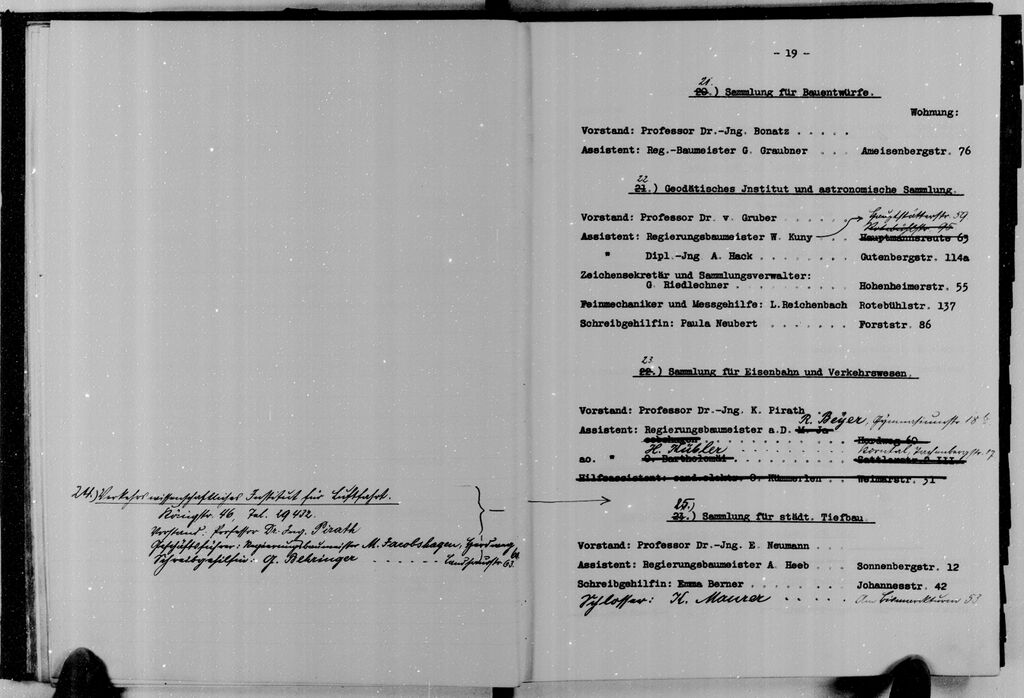 24.) Verkehrswissenschaftliches Institut für Luftfahrt.
Königstr. 46, Tel. 29432.
Vorstand: Professor Dr. Ing. Pirath
Geschäftsführer: Regierungsbaumeister M. Jacobshagen, Herdweg 60
Schreibgehilfin: G. Behringer . . . . . . Landhausstr. 63.
- 19 -
21.
20.) Sammlung für Bauentwürfe.
Wohnung:
Vorstand: Professor Dr.-Jng. Bonatz . . . . .
Assistent: Reg.-Baumeister G. Graubner . . . Ameisenbergstr. 76
22
21.) Geodätisches Jnstitut und astronomische Sammlung.
Vorstand: Professor Dr. v. Gruber . . . . . . Hauptstätterstr. 59
Assistent: Regierungsbaumeister W. Kuny . . Hauptmannsreute 63
" Dipl.-Jng A. Hack . . . . . . . . Gutenbergstr. 114a
Zeichensekretär und Sammlungsverwalter:
G. Riedlechner . . . . . . . . . . Hohenheimerstr. 55
Feinmechaniker und Messgehilfe: L.Reichenbach Rotebühlstr. 137
Schreibgehilfin: Paula Neubert . . . . . . . Forststr. 86
23.
22.) Sammlung für Eisenbahn und Verkehrswesen.
Vorstand: Professor Dr.-Jng. K. Pirath
R. Beyer, Gymnasiumstr. 18
Assistent: Regierungsbaumeister a.D. M. Ja
cobshagen . . . . . . . . . . . Herdweg 60
H. Kübler Korntal,
ao. " O. Bartholomäi . . . . . . . . . Sattlerstr 2 III
Hilfsassistent: cand.elektr. O. Kümmerlen . . Weimarstr. 31
25.
23.) Sammlung für städt. Tiefbau.
Vorstand: Professor Dr.-Jng. E. Neumann . . .
Assistent: Regierungsbaumeister A. Heeb . . . Sonnenbergstr. 12
Schreibgehilfin: Emma Berner . . . . . . . . Johannesstr. 42
Schlosser: K. Maurer . . . . . Am Bismarckturm 53